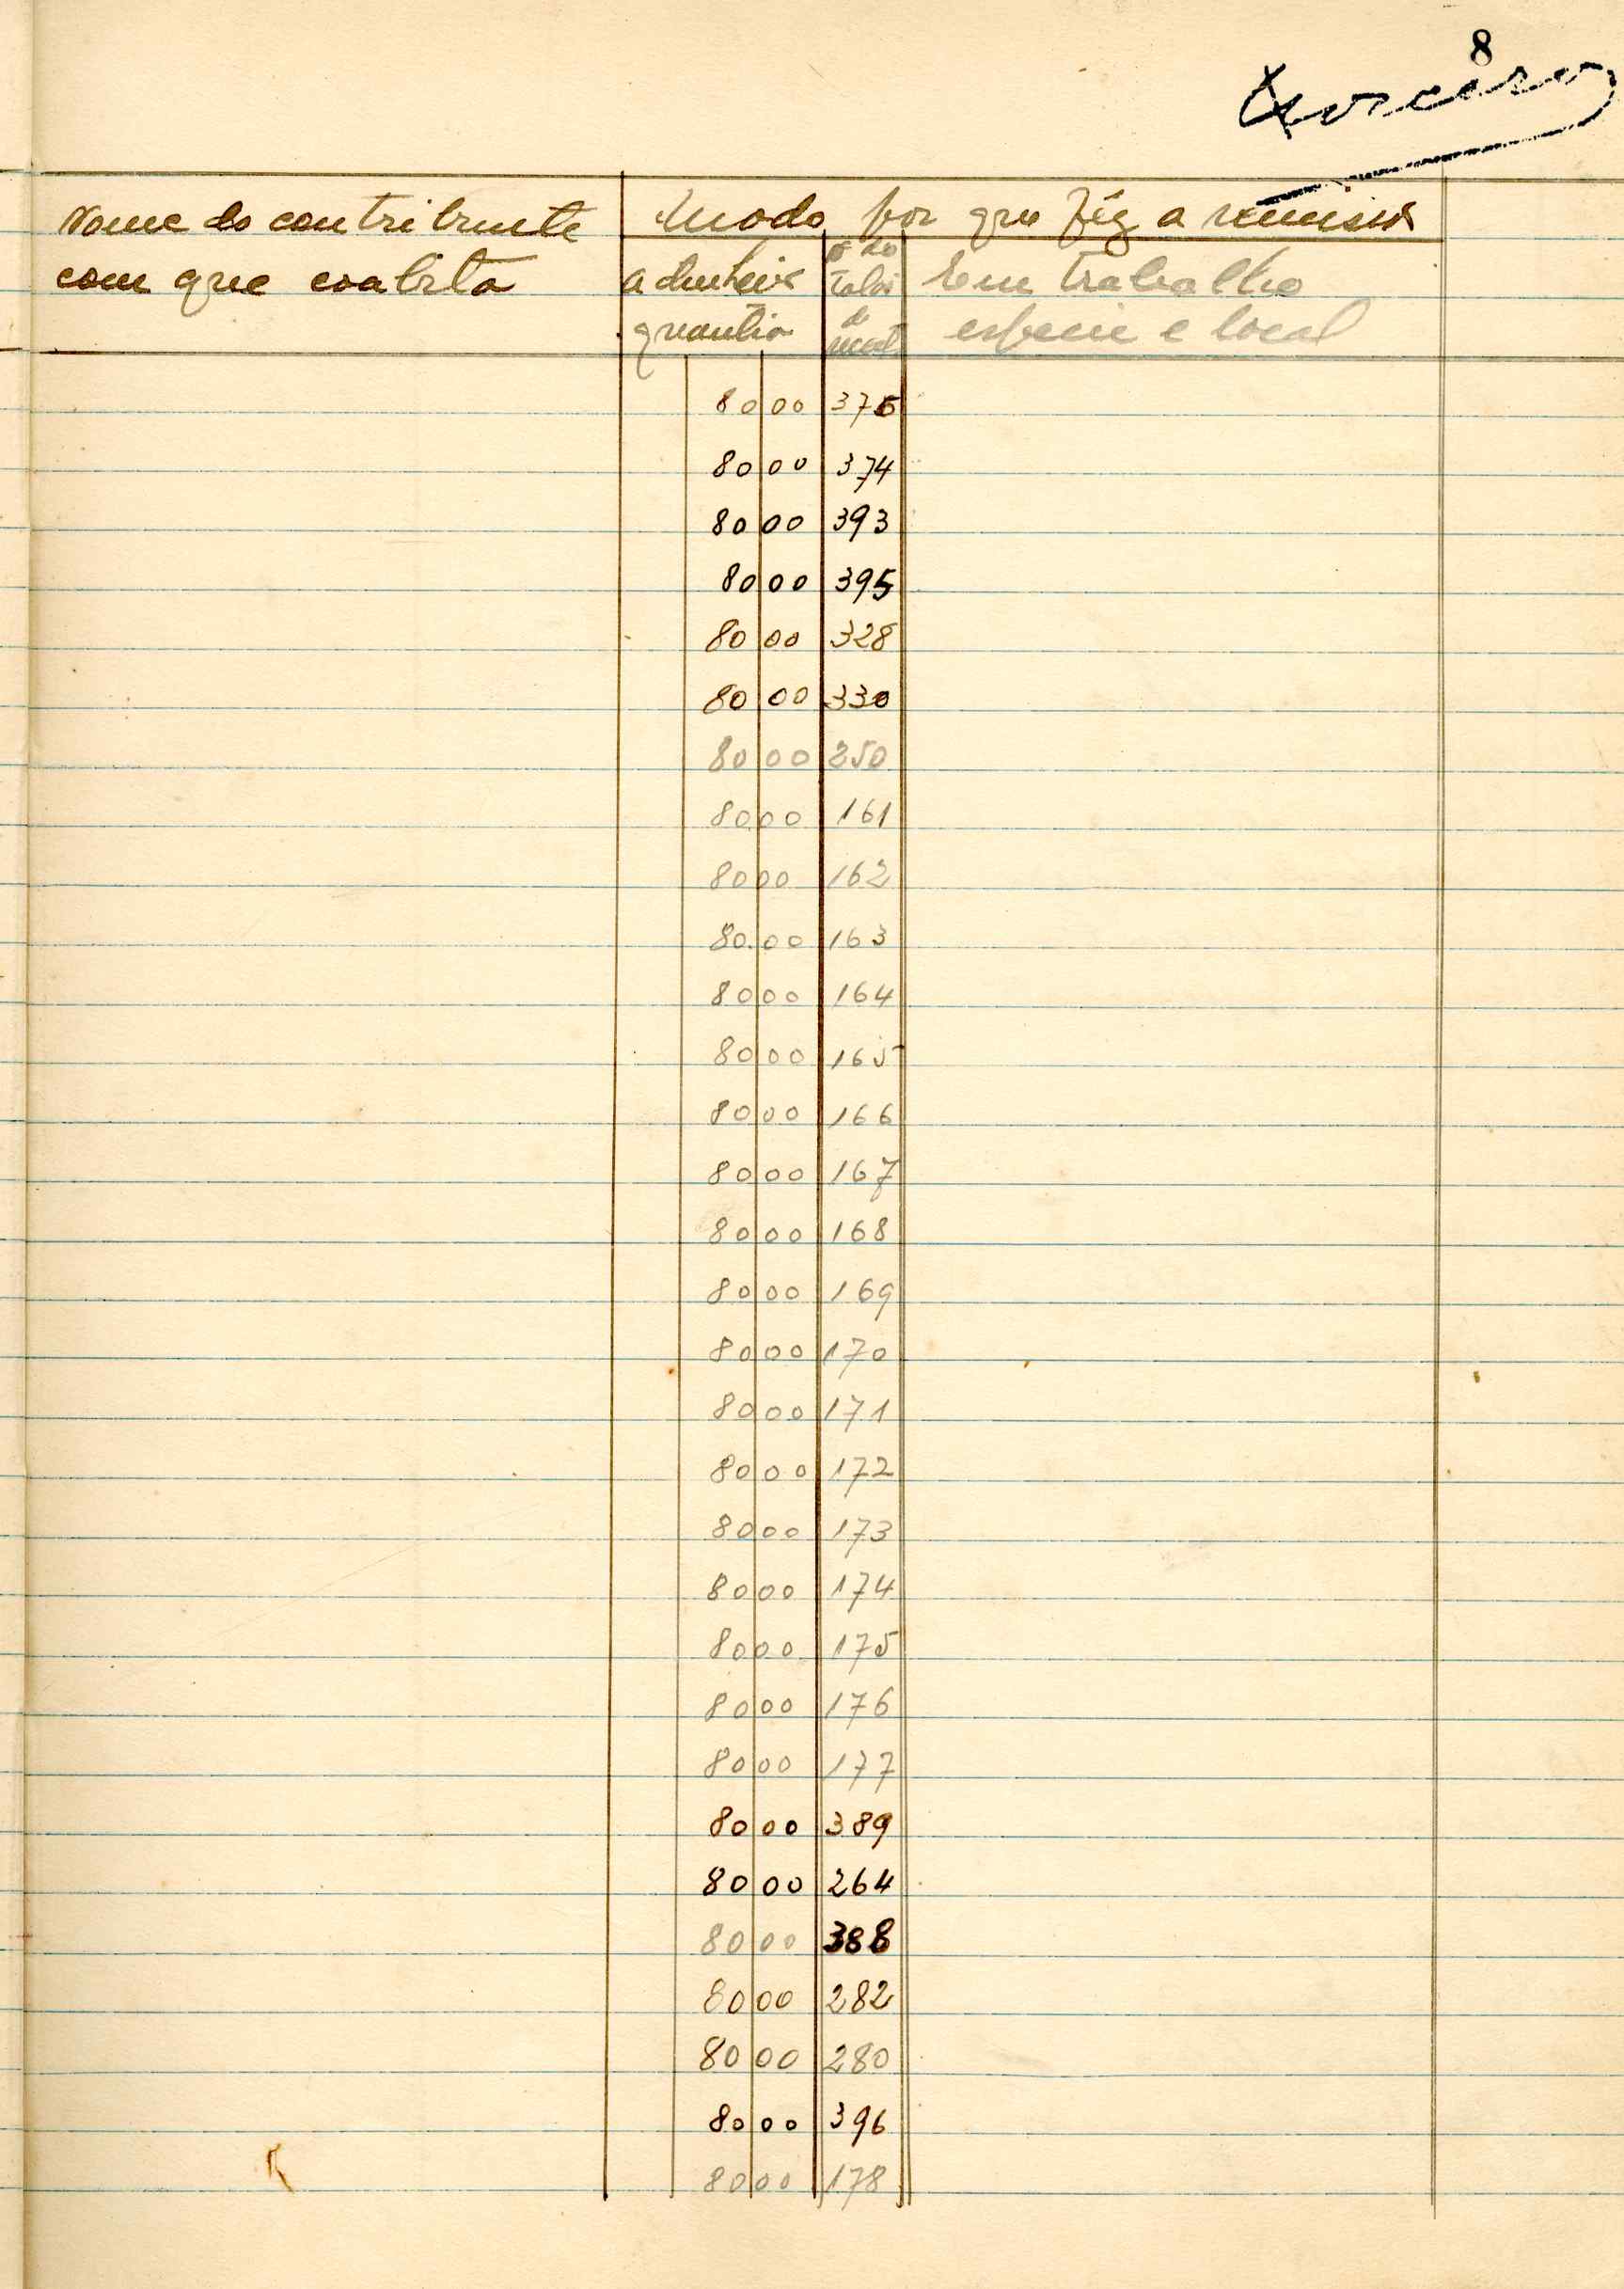 8
Nome do contribuinte
com que coabita
Modo por que fêz a remissão
a dinheiro
quantia
do
talão
de
Em trabalho
especie e local
80 00 375
80 00 374
80 00 393
80 00 395
80 00 328
80 00 330
80 00 250
80 00 161
80 00 162
80 00 163
80 00 164
80 00 165
80 00 166
80 00 167
80 00 168
80 00 169
80 00 170
80 00 171
80 00 172
80 00 173
80 00 174
80 00 175
80 00 176
80 00 177
80 00 389
80 00 264
80 00 388
80 00 282
80 00 280
80 00 396
80 00 178